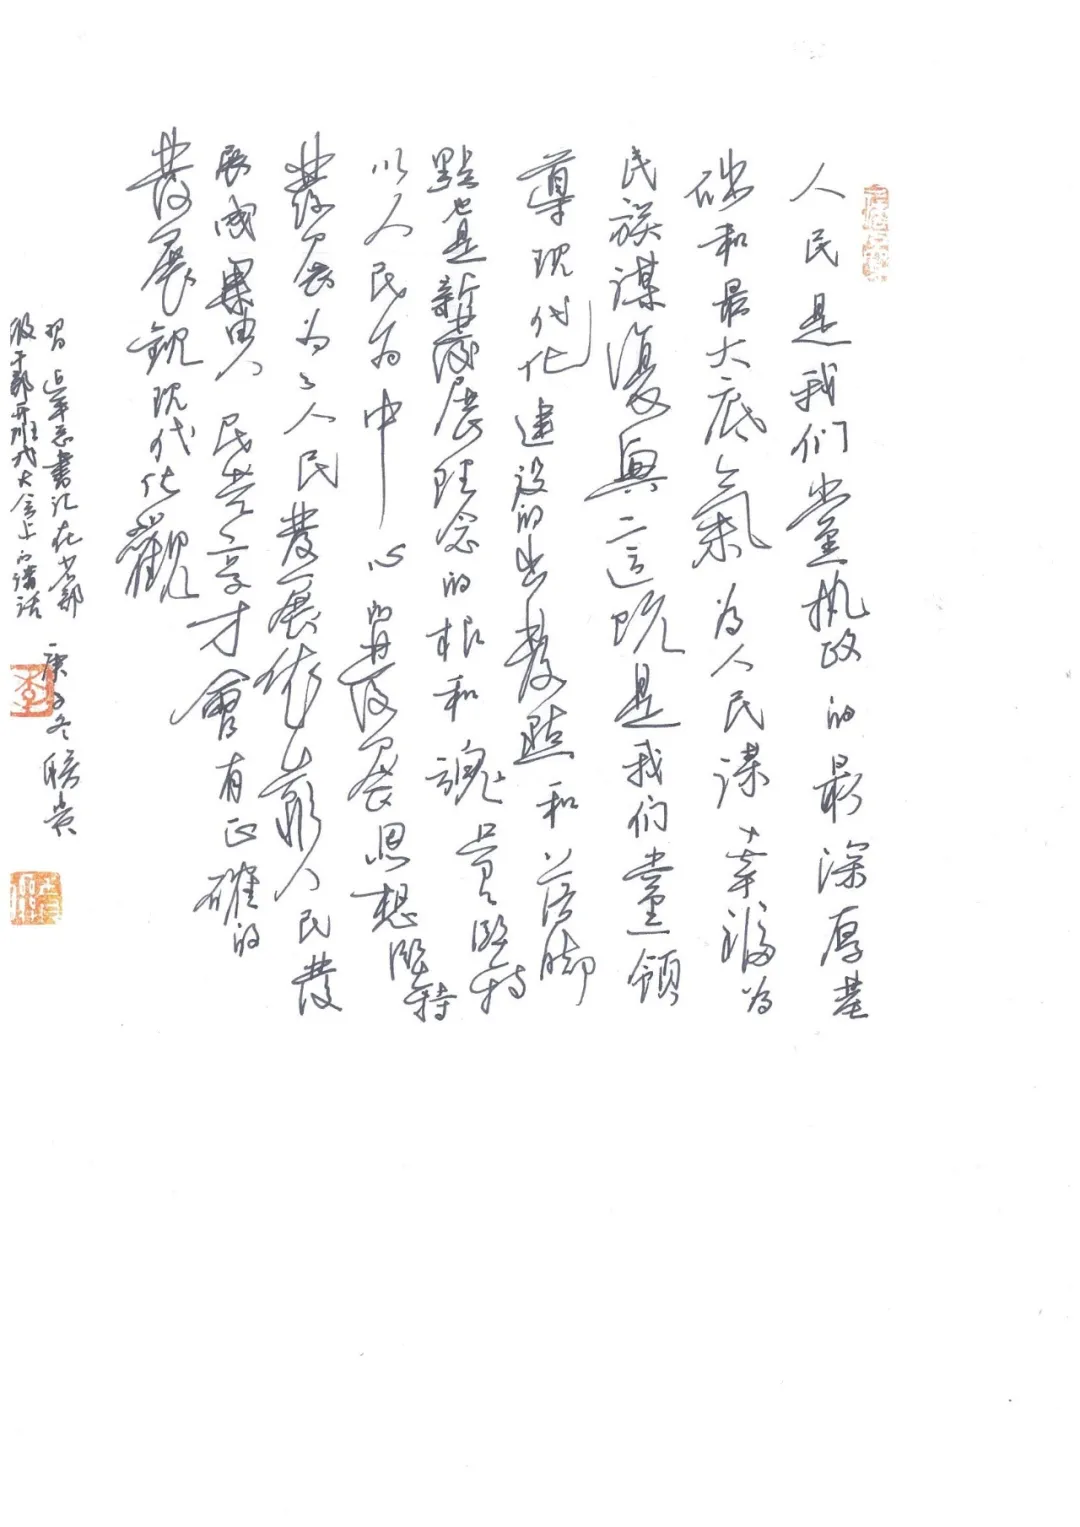 人民是我们黨执政的最深厚基
础和最大底氣为人民谋幸福为
民族谋復興这既是我们黨领
導现代化建设的出發點和落脚
點也是新發展理念的根和魂只有坚持
以人民为中心的發展思想坚持
發展为了人民發展依靠人民發
展成果由人民共享才會有正確的
發展觀现代化觀
習近平总書记在省部
级干部开班式大会上的講话
庚子冬 联贵